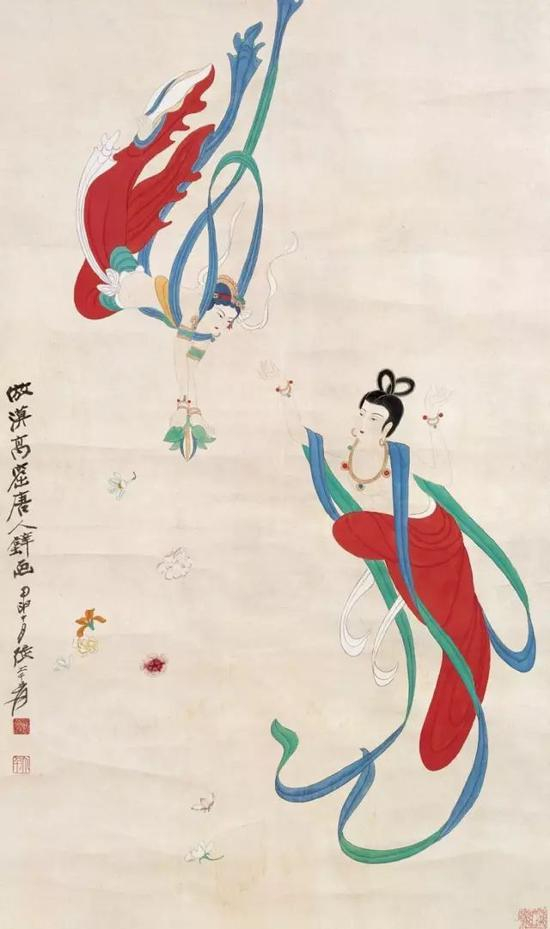 倣漠高窟唐人壁画 甲申十月 張大千爰